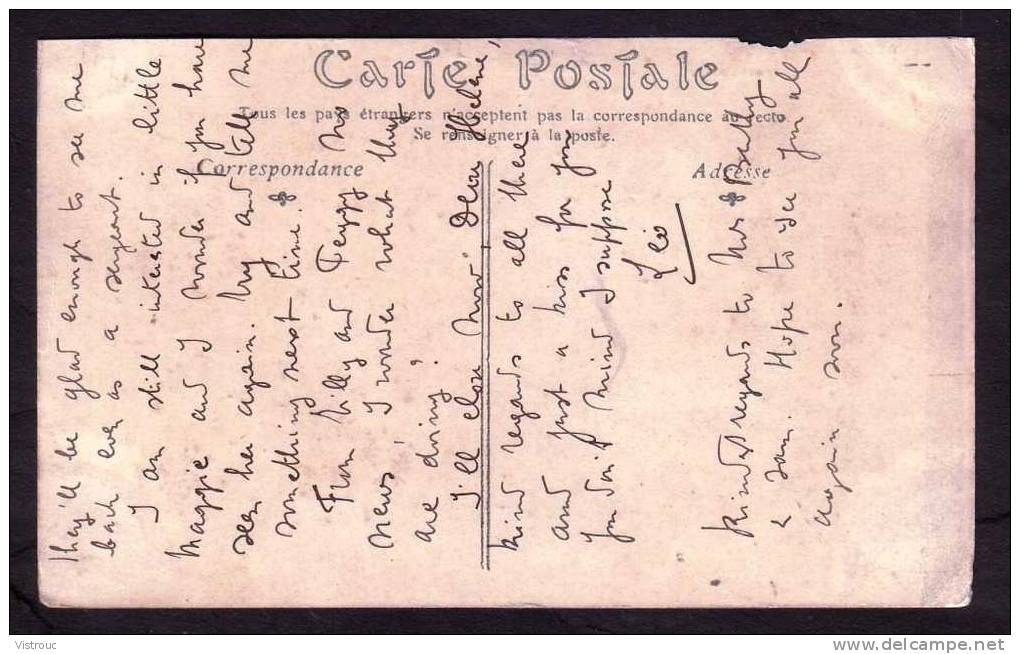 Carte Postale
Tous les pays étrangers n'acceptent pas la correspondance au recto
Se renseigner à la poste.
Correspondance
Adresse
they'll be glad enough to see me
back even as a sergeant.
I am still interested in little
Maggie and I wonder if you have
seen her again. Try and tell me
something next time.
From Lilly and Peggy no
news I wonder what they
are doing?
I'll close now Dear Helene,
kind regards to all there
and just a kiss for you
you don't mind I suppose
Leo
Kind regards to Mrs
& Sam. Hope to see you all
again soon.
Vistrouc
www.delcampe.net